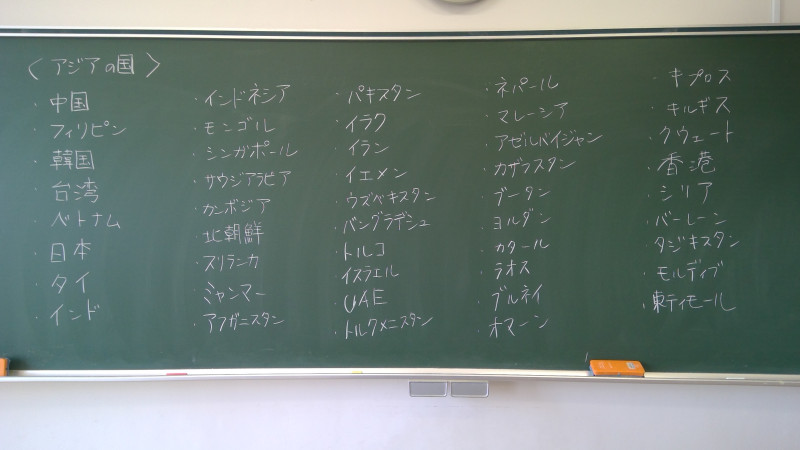 〈アジアの国〉
・中国
・フィリピン
・韓国
・台湾
・ベトナム
・日本
・タイ
・インド
・インドネシア
・モンゴル
・シンガポール
・サウジアラビア
・カンボジア
・北朝鮮
・スリランカ
・ミャンマー
・アフガニスタン
・パキスタン
・イラク
・イラン
・イエメン
・ウズベキスタン
・バングラデシュ
・トルコ
・イスラエル
・UAE
・トルクメニスタン
・ネパール
・マレーシア
・アゼルバイジャン
・カザフスタン
・ブータン
・ヨルダン
・カタール
・ラオス
・ブルネイ
・オマーン
・キプロス
・キルギス
・クウェート
・香港
・シリア
・バーレーン
・タジキスタン
・モルディブ
・東ティモール